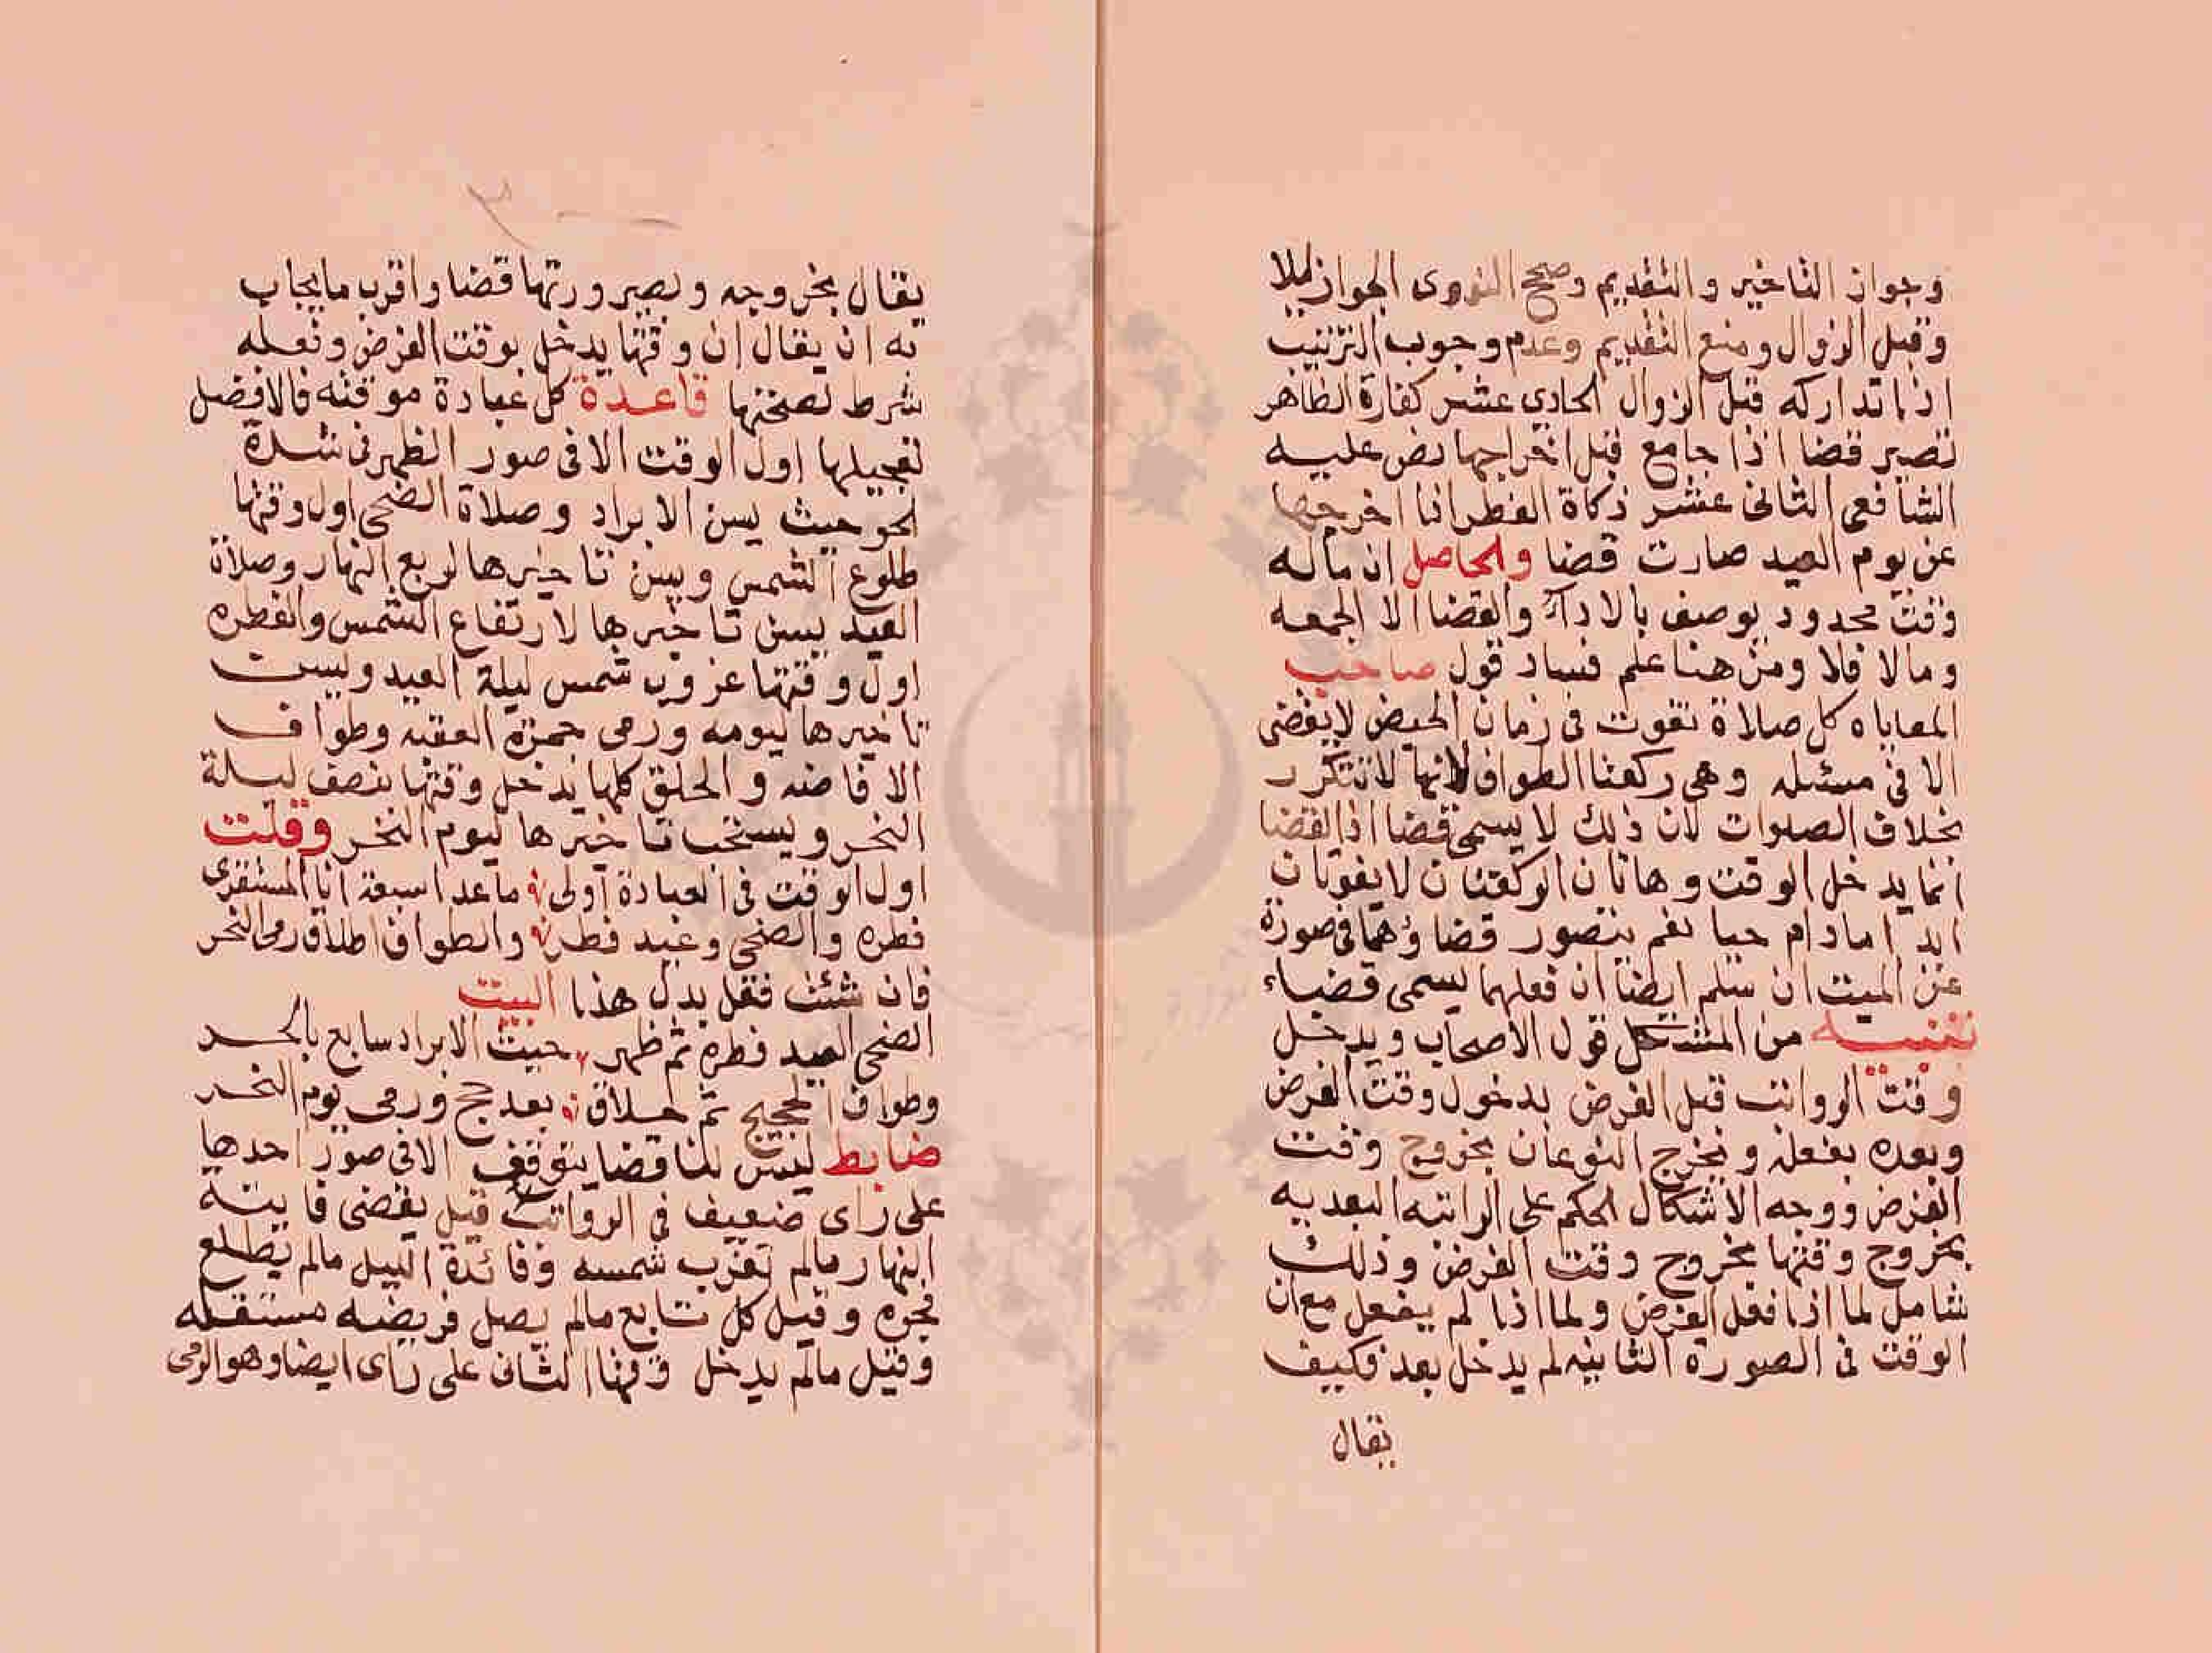 وجواز التاخير والتقديم وصحح النووى الجواز ليلا
وقبل الزوال ومنع التقديم وعدم وجوب الترتيب
اذا تداركه قبل الزوال الحادي عشر كفارة الظاهر
تصير قضا اذا جامع قبل اخراجها نص عليه
الشافعى الثانى عشر زكاة الفطر اذا اخرجها
عن يوم العيد صارت قضا والحاصل ان ماله
وقت محدود يوصف بالاداء والقضا الا الجمعه
ومالا فلا ومن هنا علم فساد قول صاحب
المعاياه كل صلاة تفوت فى زمان الحيض لا يقضى
الا فى مسئله وهى ركعتا الطواف لانها لا تتكرر
بخلاف الصلوات لان ذلك لا يسمى قضا اذ القضا
انما يدخل الوقت وهاتان الركعتان لا يفوتان
ابدا مادام حيا نعم يتصور قضاؤهما فى صورة
عن الميت ان سلم ايضا ان فعلهما يسمى قضاء
تنبيه من المشكل قول الاصحاب ويدخل
وقت الرواتب قبل الفرض بدخول وقت الفرض
وبعده بفعله ويخرج النوعان بخروج وقت
الفرض ووجه الاشكال الحكم على الراتبه البعديه
بخروج وقتها بخروج وقت الفرض وذلك
شامل لما اذا فعل الفرض ولما اذا لم يفعل مع ان
الوقت فى الصورة الثانيه لم يدخل بعد فكيف
يقال
يقال بخروجه وبصيرورتها قضا واقرب ما يجاب
به ان يقال ان وقتها يدخل بوقت الفرض وفعله
شرط لصحتها قاعدة كل عبادة موقته فالافضل
تعجيلها اول الوقت الا فى صور الظهر فى شدة
الحر حيث يسن الابراد وصلاة الضحى اول وقتها
طلوع الشمس ويسن تاخيرها لربع النهار وصلاة
العيد يسن تاخيرها لارتفاع الشمس والفطره
اول وقتها غروب شمس ليلة العيد ويسن
تاخيرها ليومه ورمى جمرة العقبه وطواف
الافاضه والحلق كلها يدخل وقتها بنصف ليلة
النحر ويستحب تاخيرها ليوم النحر وقلت
اول الوقت فى العبادة اولى ما عدا سبعة انا المستقرى
فطره والضحى وعيد فطر والطواف اطلاق رمى النحر
فان شئت فقل بدل هذا البيت
الضحى العيد فطرة ثم ظهر حيث الابراد سابع بالحد
وطواف الحجيج ثم حلاق بعد حج ورمى يوم النحر
ضابط ليس لنا قضا يتوقف الا فى صور احدها
على راى ضعيف فى الرواتب قيل يقضى فايتة
النهار مالم تغرب شمسه وفائدة الليل مالم يطلع
فجره وقيل كل تابع مالم يصل فريضه مستقبله
وقيل مالم يدخل وقتها الثانى على راى ايضا وهو الرمى